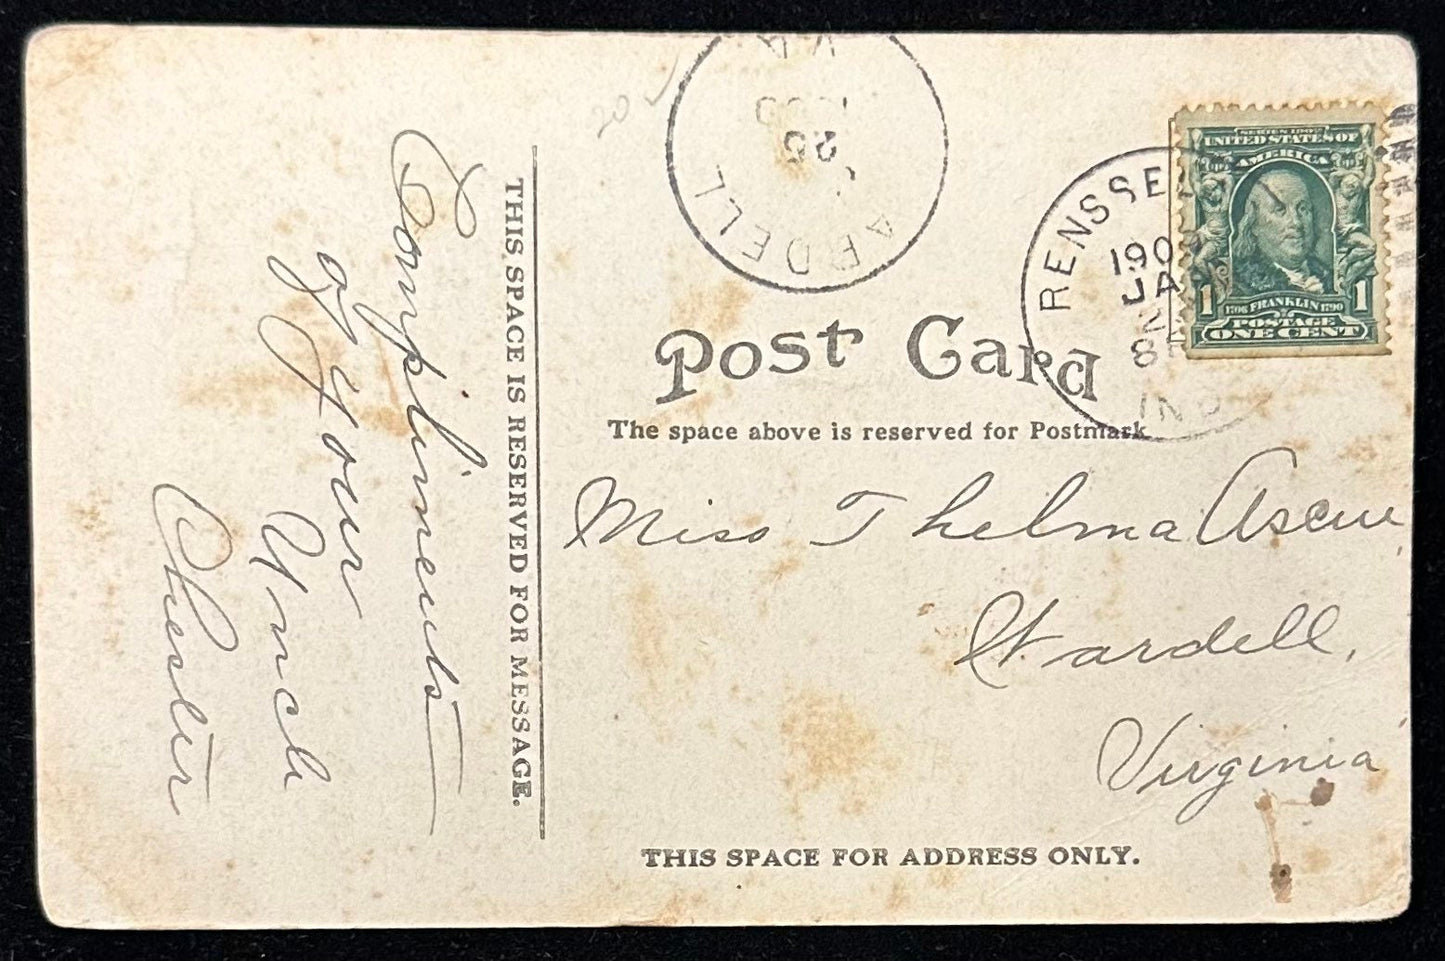 Compliments
of your
Uncle
Chester
THIS SPACE IS RESERVED FOR MESSAGE.
20
VA
25
WARDELL
RENSSE
190
JA
IND
SERIES 1902
UNITED STATES OF
AMERICA
1 1706 FRANKLIN 1790 1
POSTAGE
ONE CENT
Post Card
The space above is reserved for Postmark
Miss Thelma
Wardell,
Virginia
THIS SPACE FOR ADDRESS ONLY.